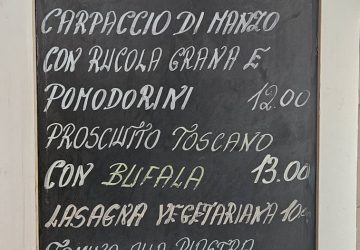 CARPACCIO DI MANZO
CON RUCOLA GRANA E
POMODORINI 12.00
PROSCIUTTO TOSCANO
CON BUFALA 13.00
LASAGNA VEGETARIANA 10.00